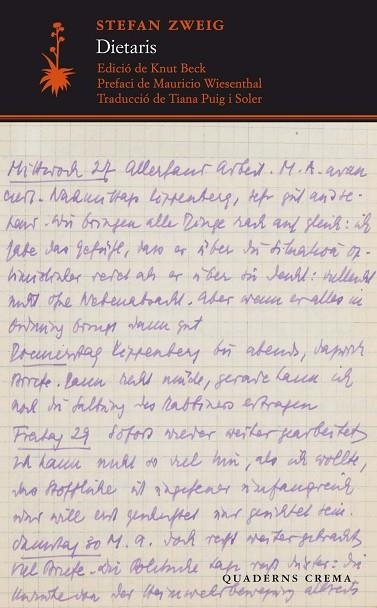 STEFAN ZWEIG
Dietaris
Edició de Knut Beck
Prefaci de Mauricio Wiesenthal
Traducció de Tiana Puig i Soler
Mittwoch 27 Allerhand Arbeit. M. A. avan
ciert. Nachmittags Kippenberg, sehr gut und
Wir bringen alle Dinge rasch auf gleich: ich
habe das Gefühl, dass er über die Situation op-
timistischer redet als er über sie denkt: vielleicht
nicht ohne Nebenabsicht. Aber wenn er alles in
Ordnung bringt dann gut
Donnerstag Kippenberg bis abends, dazwischen
Briefe. Dann recht müde, gerade kann ich
noch die des Rabbiners ertragen
Freitag 29 Sofort wieder weiter gearbeitet
Ich kann nicht so viel tun, als ich wollte,
das Stoffliche ist ungeheuer umfangreich
und will erst und gesichtet sein.
Samstag 30 M. A. doch recht weiter gebracht
Viel Briefe. Die Politische Lage sehr düster: die
von der Heimwehrbewegung
QUADERNS CREMA